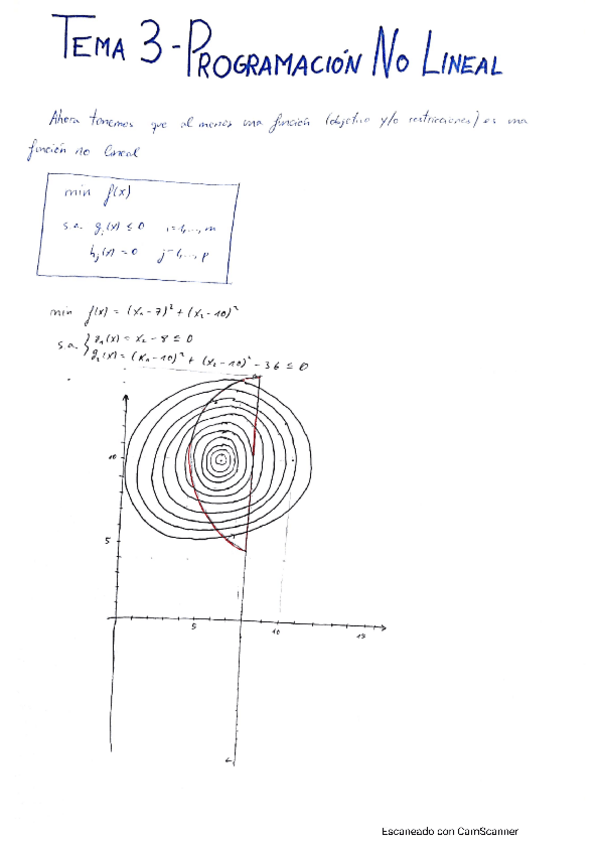 TEMA 3 - PROGRAMACIÓN NO LINEAL
Ahora tenemos que al menos una función (objetivo y/o restricciones) es una
función no lineal
min f(x)
s.a. gᵢ(x) ≤ 0 i=1,...,m
hⱼ(x) = 0 j=1,...,p
min f(x) = (x₁ - 7)² + (x₂ - 10)²
s.a. { g₁(x) = x₂ - 8 ≤ 0
g₂(x) = (x₁ - 10)² + (x₂ - 10)² - 36 ≤ 0
10
5
5 10 15
Escaneado con CamScanner